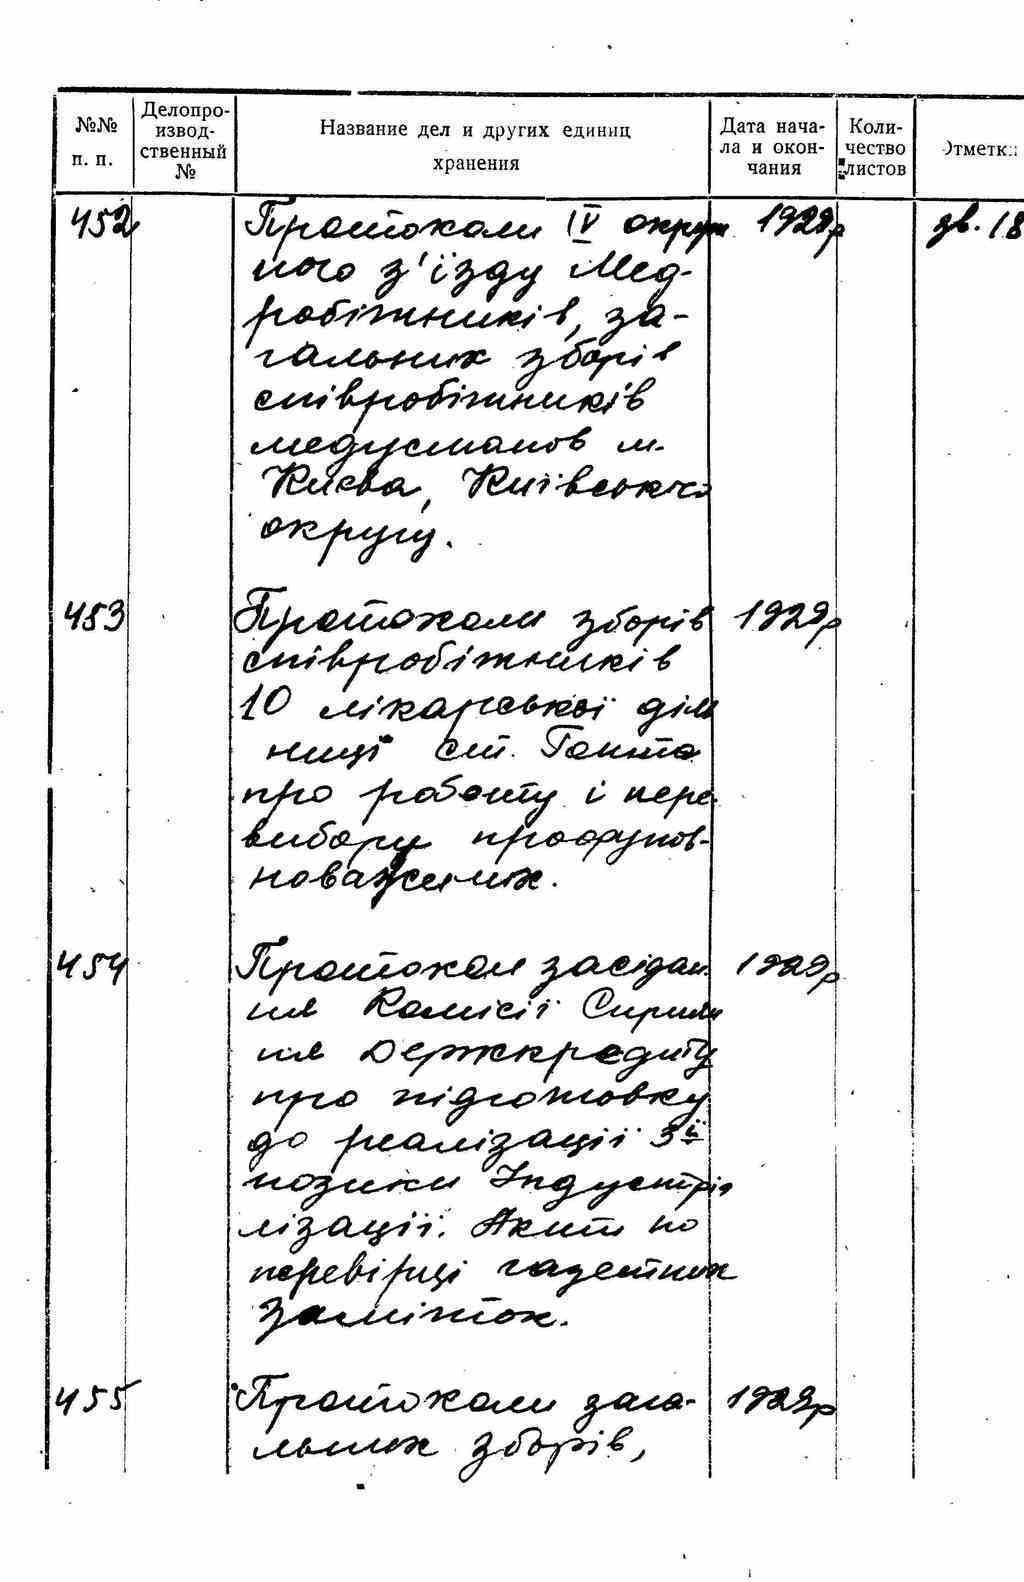 №№ п. п.
Делопро-
извод-
ственный
№
Название дел и других единиц
хранения
Дата нача-
ла и окон-
чания
Коли-
чество
листов
Отметки
452 Протоколи IV окруж 1929р зв. 18
ного з'їзду Мед-
робітників, за-
гальних зборів
співробітників
медустанов м.
Києва, Київського
округу.
453 Протоколи зборів 1929р
співробітників
10 лікарської діль
ниці ст.
про роботу і пере
вибори профупов-
новажених.
454 Протоколи засідан 1929р
ня Комісії Сприян
ня Держкредиту
про підготовку
до реалізації 3ї
позики Індустріа
лізації. Акти по
перевірці газетних
заміток.
455 Протоколи зага- 1929р
льних зборів,